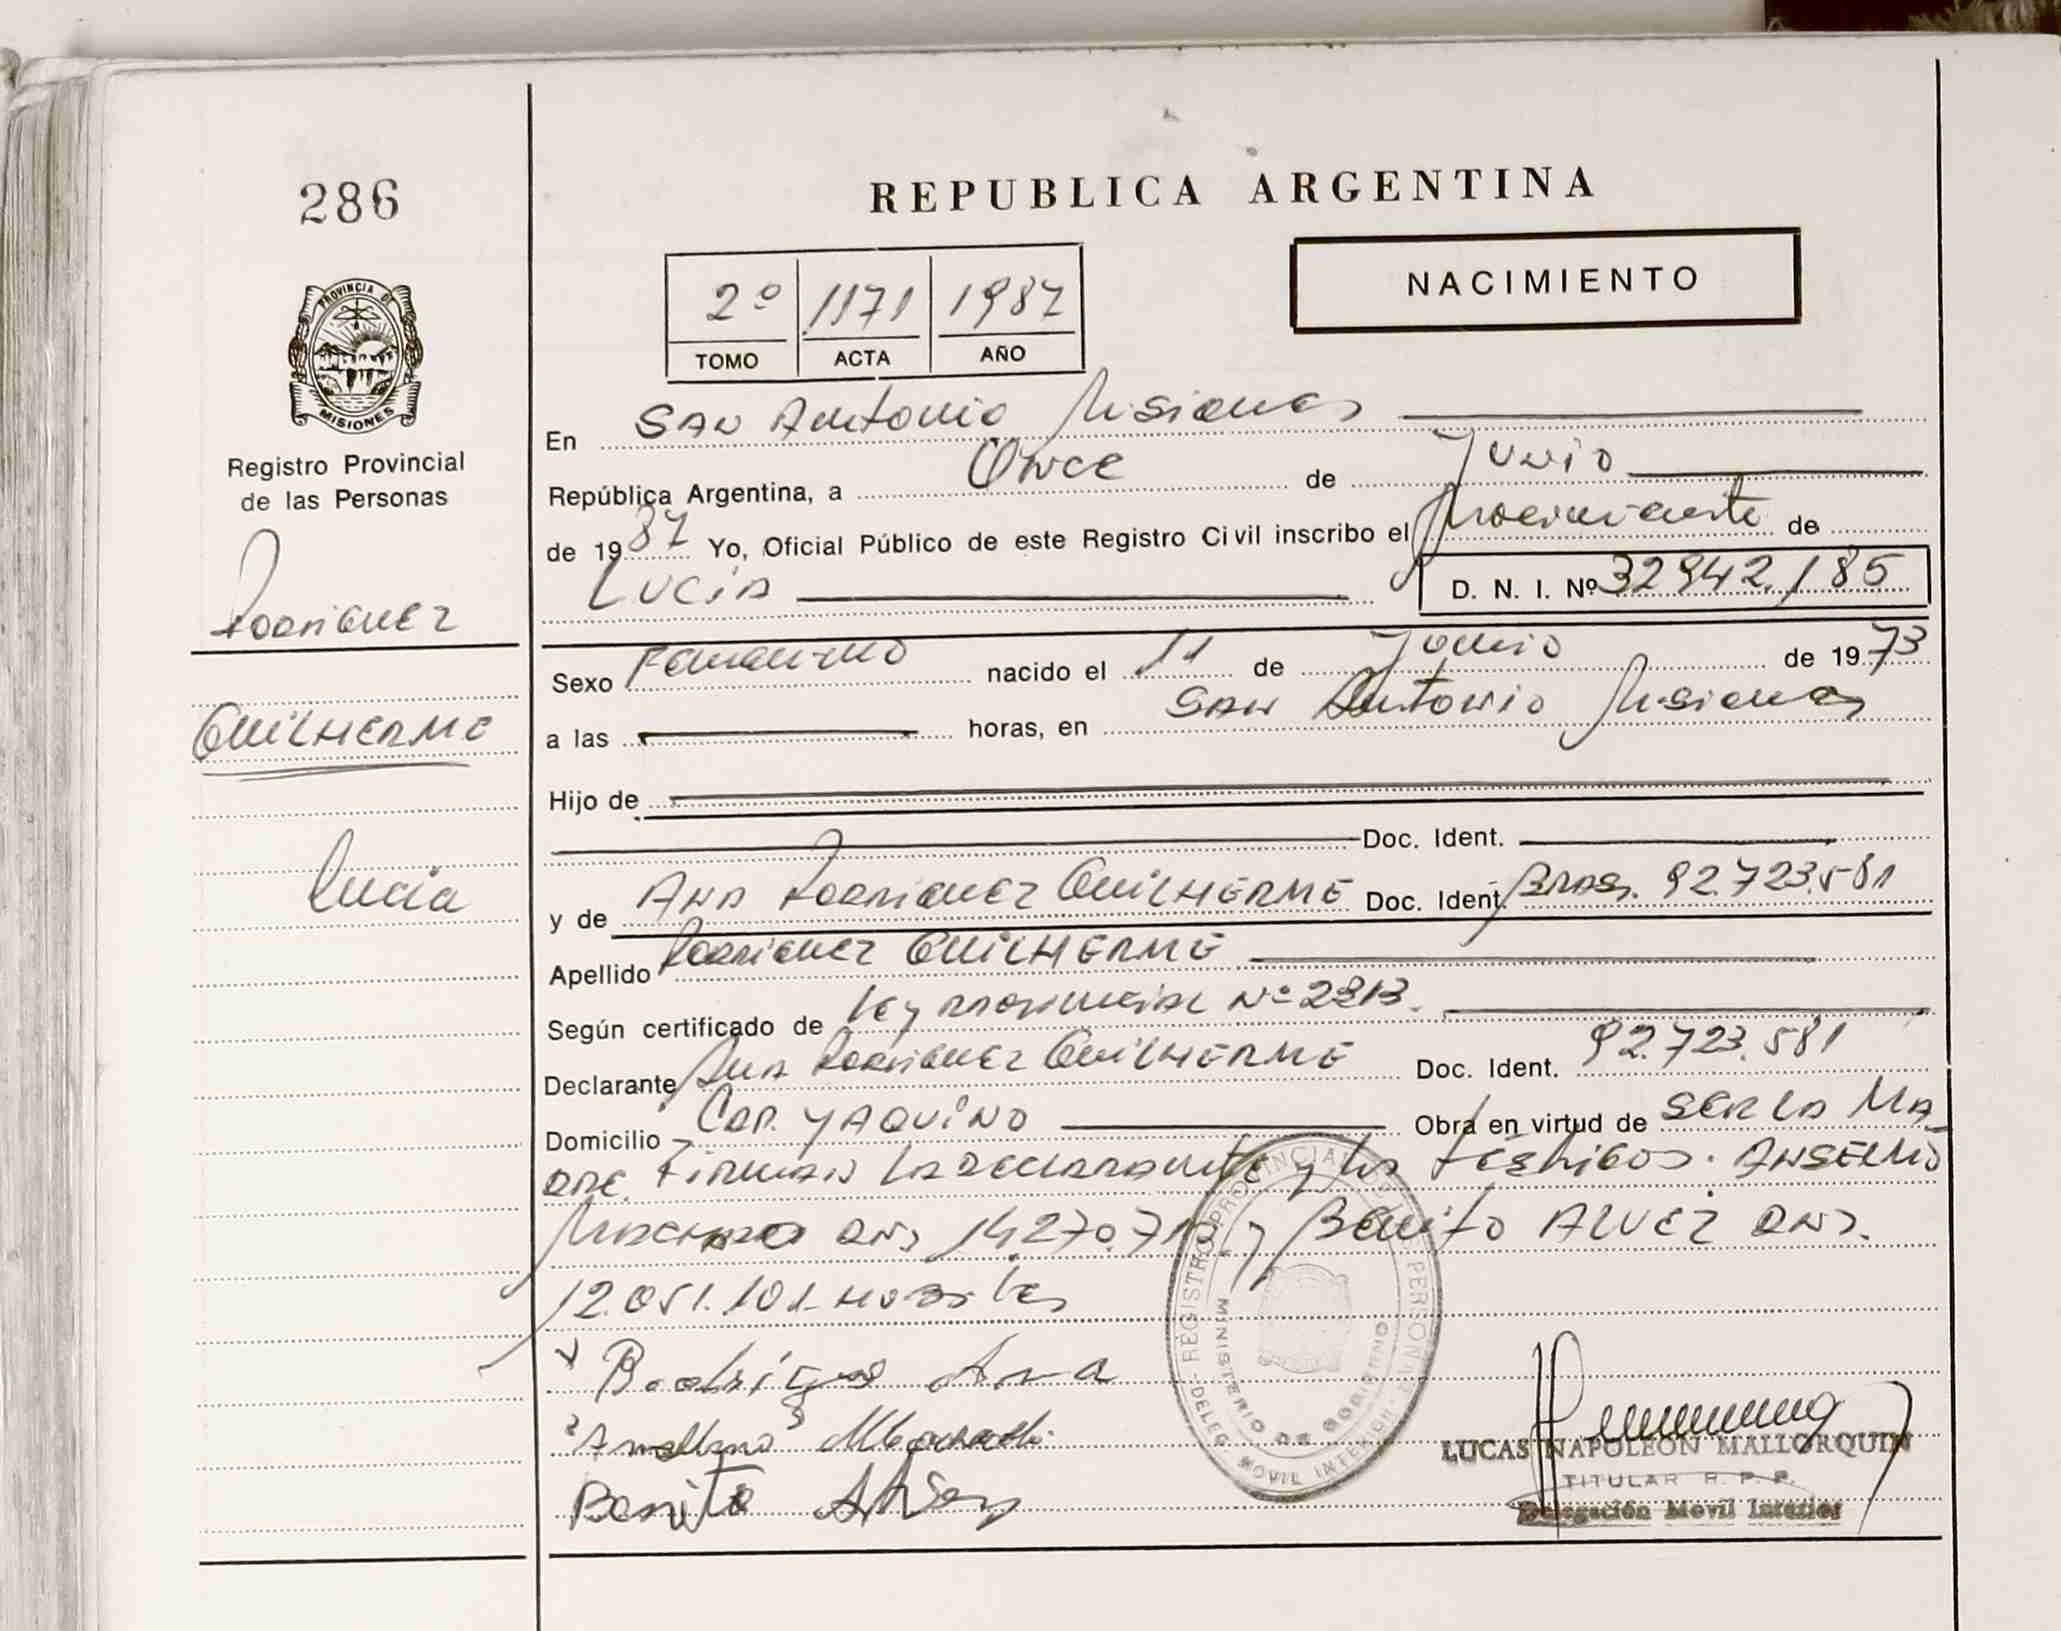 286
REPUBLICA ARGENTINA
NACIMIENTO
2º 1171 1987
TOMO ACTA AÑO
PROVINCIA DE
MISIONES
Registro Provincial
de las Personas
Rodriguez
GUILHERME
Lucia
En San Antonio Misiones
República Argentina, a Once de Junio
de 1987 Yo, Oficial Público de este Registro Civil inscribo el Nacimiento de
LUCÍA D. N. I. Nº 32.942.185
Sexo Femenino nacido el 11 de Junio de 1973
a las horas, en San Antonio Misiones
Hijo de
Doc. Ident.
y de ANA RODRIGUEZ GUILHERME Doc. Ident. Bras. 92.723.581
Apellido RODRIGUEZ GUILHERME
Según certificado de Ley Provincial Nº 2313.
Declarante Ana RODRIGUEZ GUILHERME Doc. Ident. 92.723.581
Domicilio Cap. YAQUINO Obra en virtud de SER LA MA
DRE. Firman La Declarante y los Testigos. ANSELMO
Machado DNI y Benito ALVEZ DNI.
12.051.101 Habiles
Rodrigues Ana
Anselmo Machado
Benito Alves
REGISTRO PROVINCIAL DE LAS PERSONAS
MINISTERIO DE GOBIERNO
DELEG. MOVIL INTERIOR
LUCAS NAPOLEON MALLORQUIN
TITULAR R. P. P.
Delegación Movil Interior